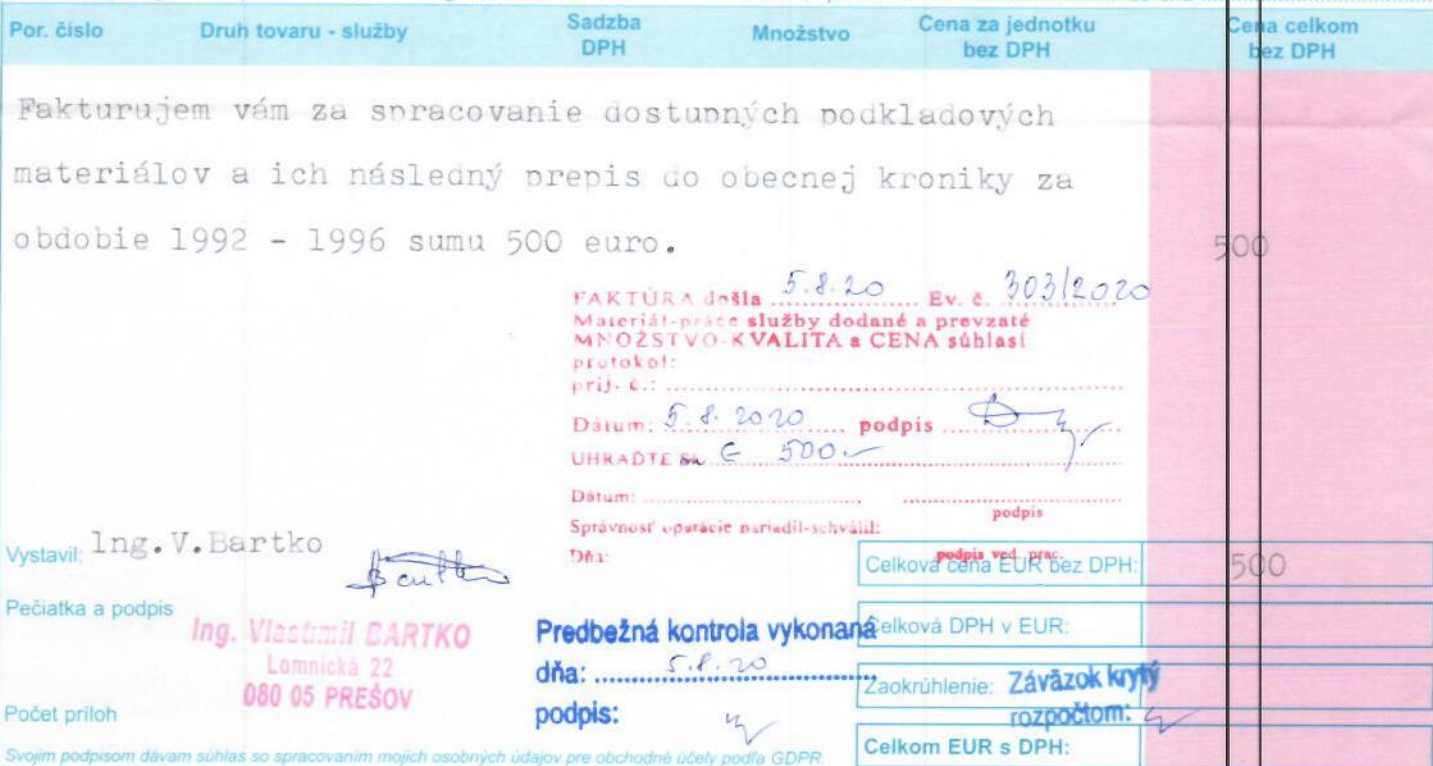 Por. číslo Druh tovaru - služby Sadzba DPH Množstvo Cena za jednotku bez DPH Cena celkom bez DPH
Fakturujem vám za spracovanie dostupných podkladových
materiálov a ich následný prepis do obecnej kroniky za
obdobie 1992 - 1996 sumu 500 euro. 500
FAKTÚRA došla 5.8.20 Ev. č. 303/2020
Materiál-práce služby dodané a prevzaté
MNOŽSTVO-KVALITA a CENA súhlasí
protokol:
prij. č.:
Dátum: 5.8.2020 podpis
UHRAĎTE € 500.-
Dátum:
podpis
Správnosť operácie nariadil-schválil:
Dňa: podpis ved. prac.
Vystavil: Ing.V.Bartko
Celková cena EUR bez DPH: 500
Pečiatka a podpis
Ing. Vlastimil BARTKO
Lomnická 22
080 05 PREŠOV
Predbežná kontrola vykonaná
dňa: 5.8.20
podpis:
Celková DPH v EUR:
Zaokrúhlenie: Záväzok krytý
rozpočtom:
Počet príloh
Celkom EUR s DPH:
Svojim podpisom dávam súhlas so spracovaním mojich osobných údajov pre obchodné účely podľa GDPR.